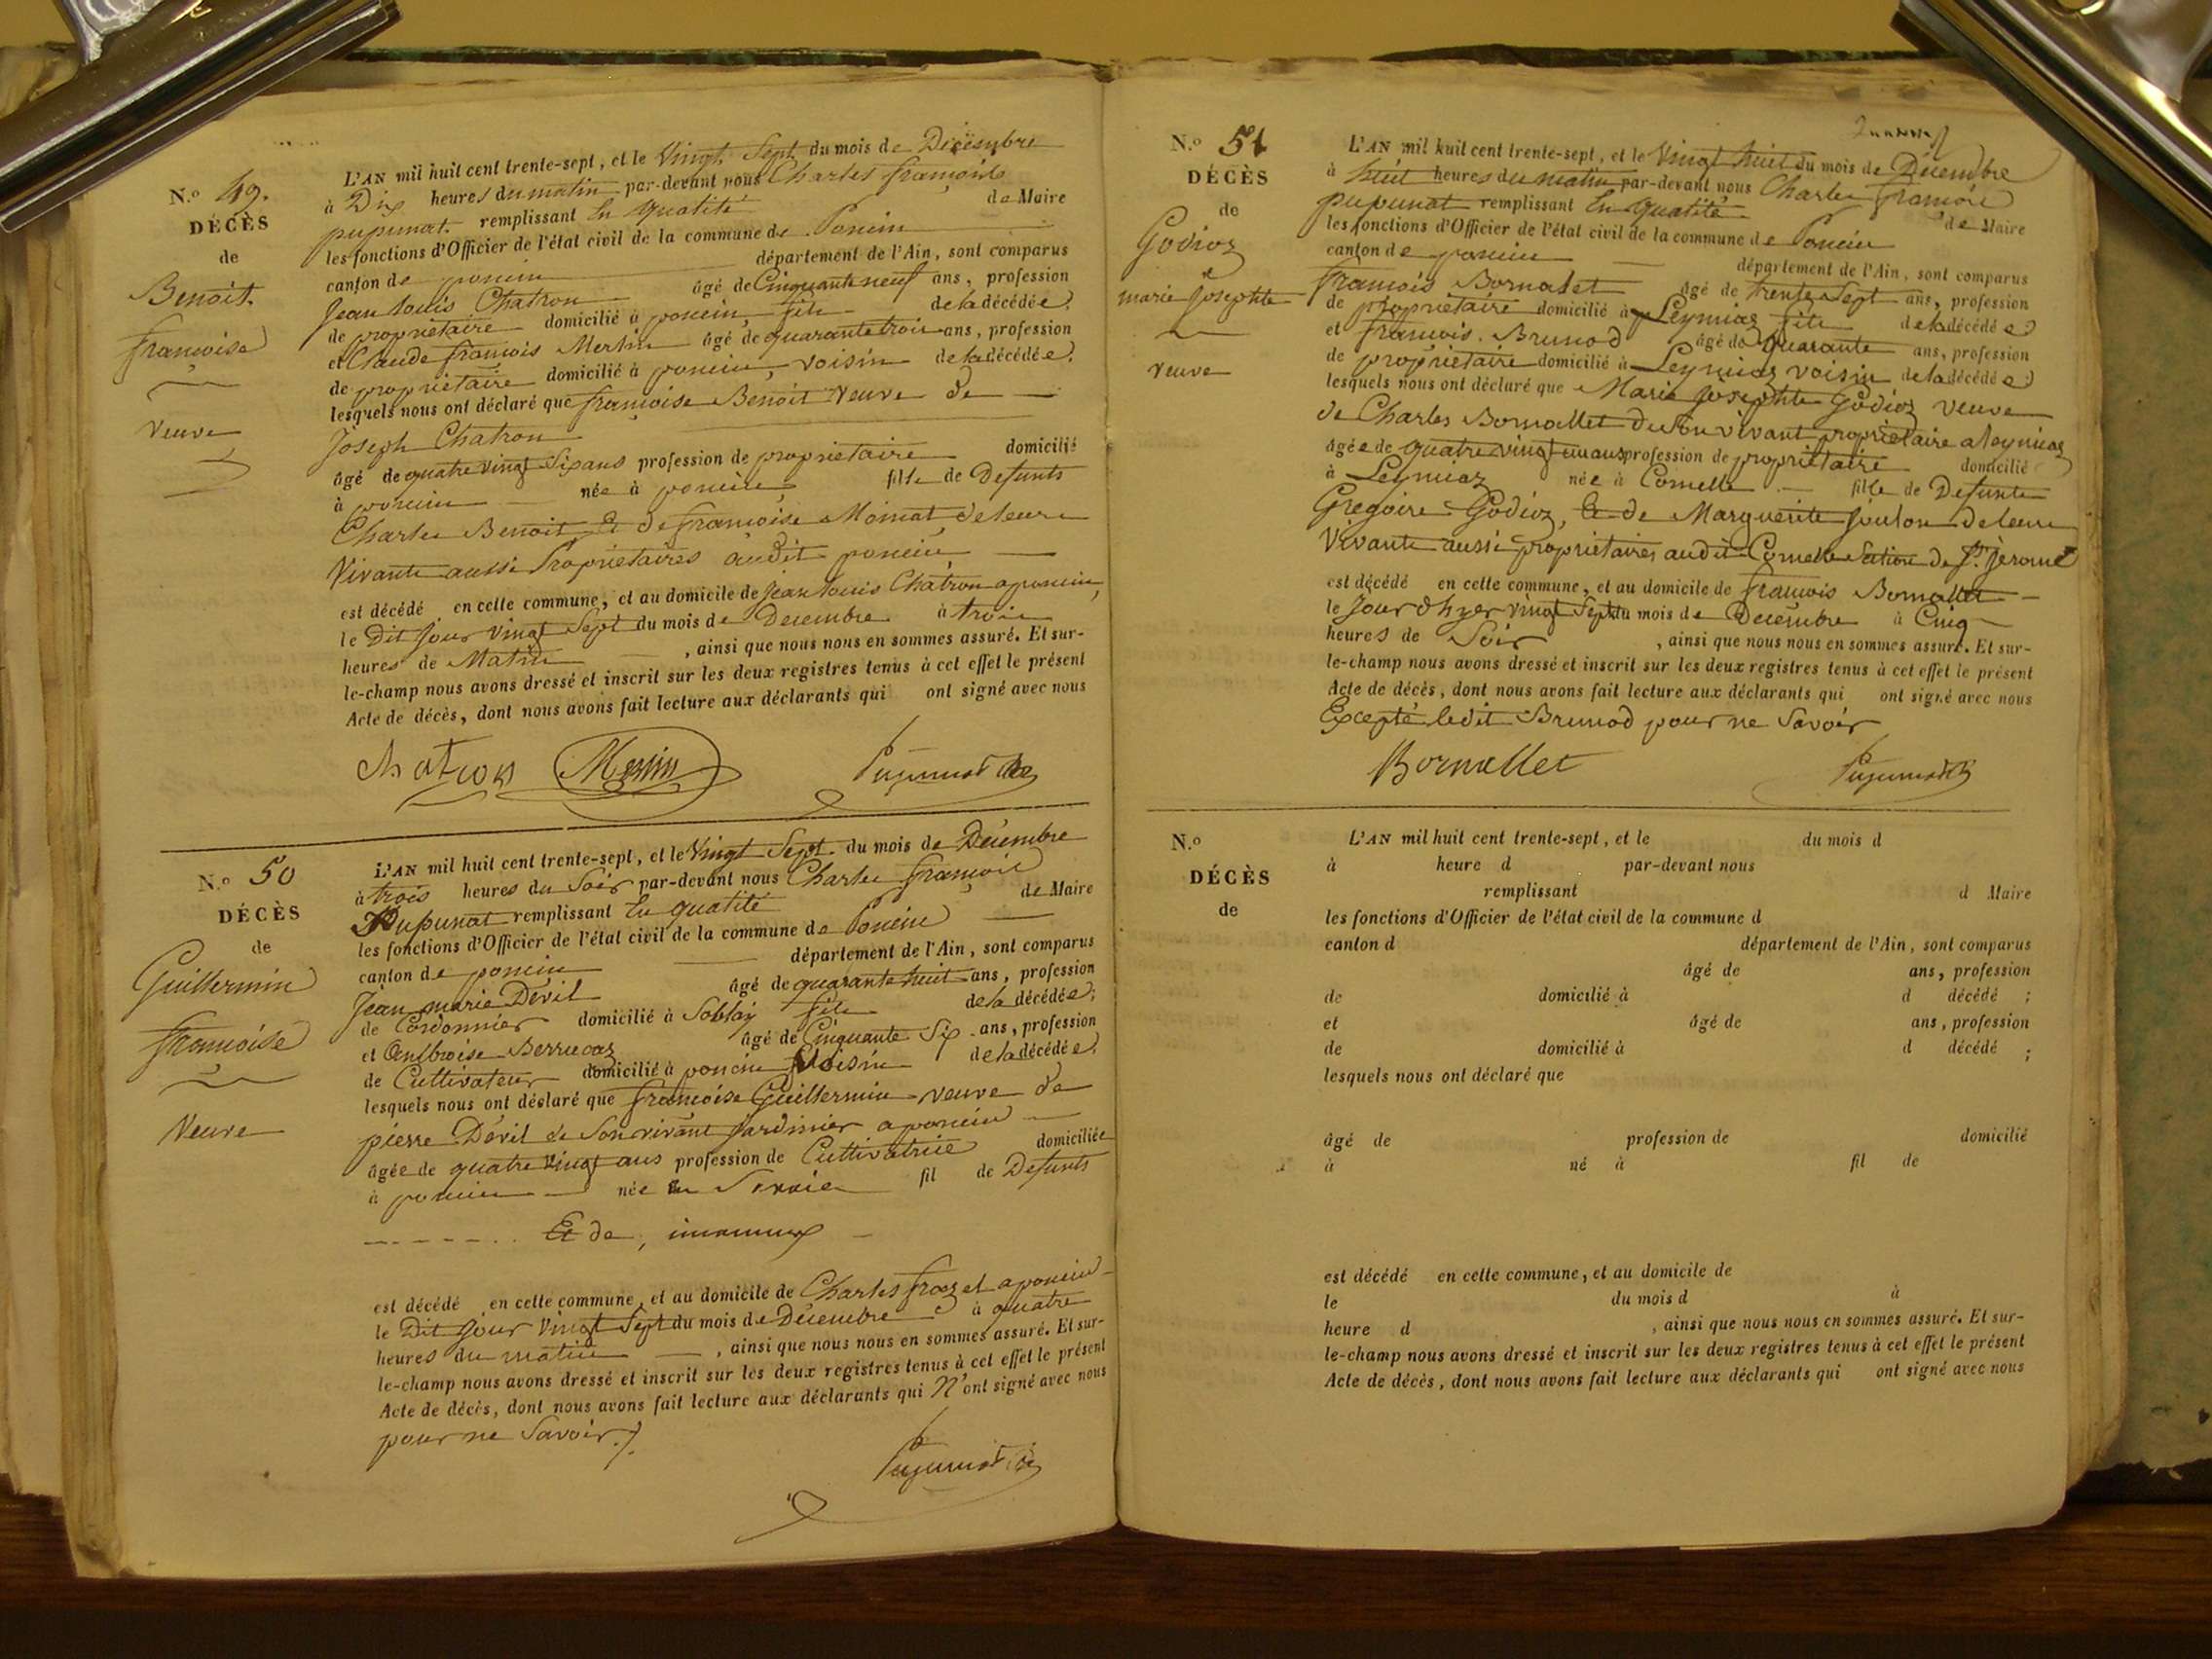 N.º 49.
DÉCÈS
de
Benoit
françoise
veuve
L'AN mil huit cent trente-sept, et le Vingt Sept du mois de Décembre
à Dix heures du matin par-devant nous Charles françois
pupunat remplissant En qualité de Maire
les fonctions d'Officier de l'état civil de la commune de Poncin
canton de poncin département de l'Ain, sont comparus
Jean Louis Chatron âgé de Cinquante neuf ans, profession
de propriétaire domicilié à poncin, fils de la décédée;
et Claude françois Merlin âgé de quarante trois ans, profession
de propriétaire domicilié à poncin, voisin de la décédée;
lesquels nous ont déclaré que françoise Benoit Veuve de
Joseph Chatron
âgé de quatre vingt Six ans profession de propriétaire domicilié
à poncin née à poncin fille de Defunts
Charles Benoit Et de françoise Momat, de leurs
Vivants aussi Propriétaires audit poncin
est décédé en cette commune, et au domicile de Jean Louis Chatron a poncin,
le Dit Jour Vingt Sept du mois de Decembre à trois
heures de Matin , ainsi que nous nous en sommes assuré. Et sur-
le-champ nous avons dressé et inscrit sur les deux registres tenus à cet effet le présent
Acte de décès, dont nous avons fait lecture aux déclarants qui ont signé avec nous
Chatron Merlin Pupunat
N.º 50
DÉCÈS
de
Guillermin
françoise
Veuve
L'AN mil huit cent trente-sept, et le Vingt Sept du mois de Décembre
à trois heures du Soir par-devant nous Charles françois
Pupunat remplissant En qualité de Maire
les fonctions d'Officier de l'état civil de la commune de Poncin
canton de poncin département de l'Ain, sont comparus
Jean marie Dévil âgé de quarante huit ans, profession
de Cordonnier domicilié à Soblay fils de la décédée;
et Ambroise Berrucaz âgé de Cinquante Six ans, profession
de Cultivateur domicilié à poncin Voisin de la décédée;
lesquels nous ont déclaré que françoise Guillermin veuve de
pierre Dévil de Son vivant Jardinier a poncin
âgée de quatre vingt ans profession de Cultivatrice domiciliée
à poncin née en Savoie fil de Defunts
Et de, inconnus
est décédé en cette commune, et au domicile de Charles frozet a poncin
le Dit Jour Vingt Sept du mois de Décembre à quatre
heures du matin , ainsi que nous nous en sommes assuré. Et sur-
le-champ nous avons dressé et inscrit sur les deux registres tenus à cet effet le présent
Acte de décès, dont nous avons fait lecture aux déclarants qui N'ont signé avec nous
pour ne Savoir.
Pupunat
N.º 51
DÉCÈS
de
Godioz
marie Josephte
veuve
L'AN mil huit cent trente-sept, et le Vingt huit du mois de Décembre
à huit heures du matin par-devant nous Charles françois
pupunat remplissant En qualité de Maire
les fonctions d'Officier de l'état civil de la commune de Poncin
canton de poncin département de l'Ain, sont comparus
françois Bornalet âgé de trente Sept ans, profession
de propriétaire domicilié à Leymiaz fils de la décédée;
et françois Brunod âgé de Quarante ans, profession
de propriétaire domicilié à Leymiaz voisin de la décédée;
lesquels nous ont déclaré que Marie Josephte Godioz veuve
de Charles Bornallet de Son vivant propriétaire a leymiaz
âgée de quatre vingt un ans profession de propriétaire domicilié
à Leymiaz née à Cornelle fille de Defunts
Gregoire Godioz, Et de Marguerite Goulon de leur
Vivants aussi propriétaires audit Cornelle Section de St. Jérome
est décédé en cette commune, et au domicile de françois Bornallet
le Jour d'hyer vingt Sept du mois de Decembre à Cinq
heures de Soir , ainsi que nous nous en sommes assuré. Et sur-
le-champ nous avons dressé et inscrit sur les deux registres tenus à cet effet le présent
Acte de décès, dont nous avons fait lecture aux déclarants qui ont signé avec nous
Excepté ledit Brunod pour ne Savoir
Bornallet Pupunat
N.º
DÉCÈS
de
L'AN mil huit cent trente-sept, et le du mois d
à heure d par-devant nous
remplissant d Maire
les fonctions d'Officier de l'état civil de la commune d
canton d département de l'Ain, sont comparus
âgé de ans, profession
de domicilié à d décédé ;
et âgé de ans, profession
de domicilié à d décédé ;
lesquels nous ont déclaré que
âgé de profession de domicilié
à né à fil de
est décédé en cette commune, et au domicile de
le du mois d à
heure d , ainsi que nous nous en sommes assuré. Et sur-
le-champ nous avons dressé et inscrit sur les deux registres tenus à cet effet le présent
Acte de décès, dont nous avons fait lecture aux déclarants qui ont signé avec nous